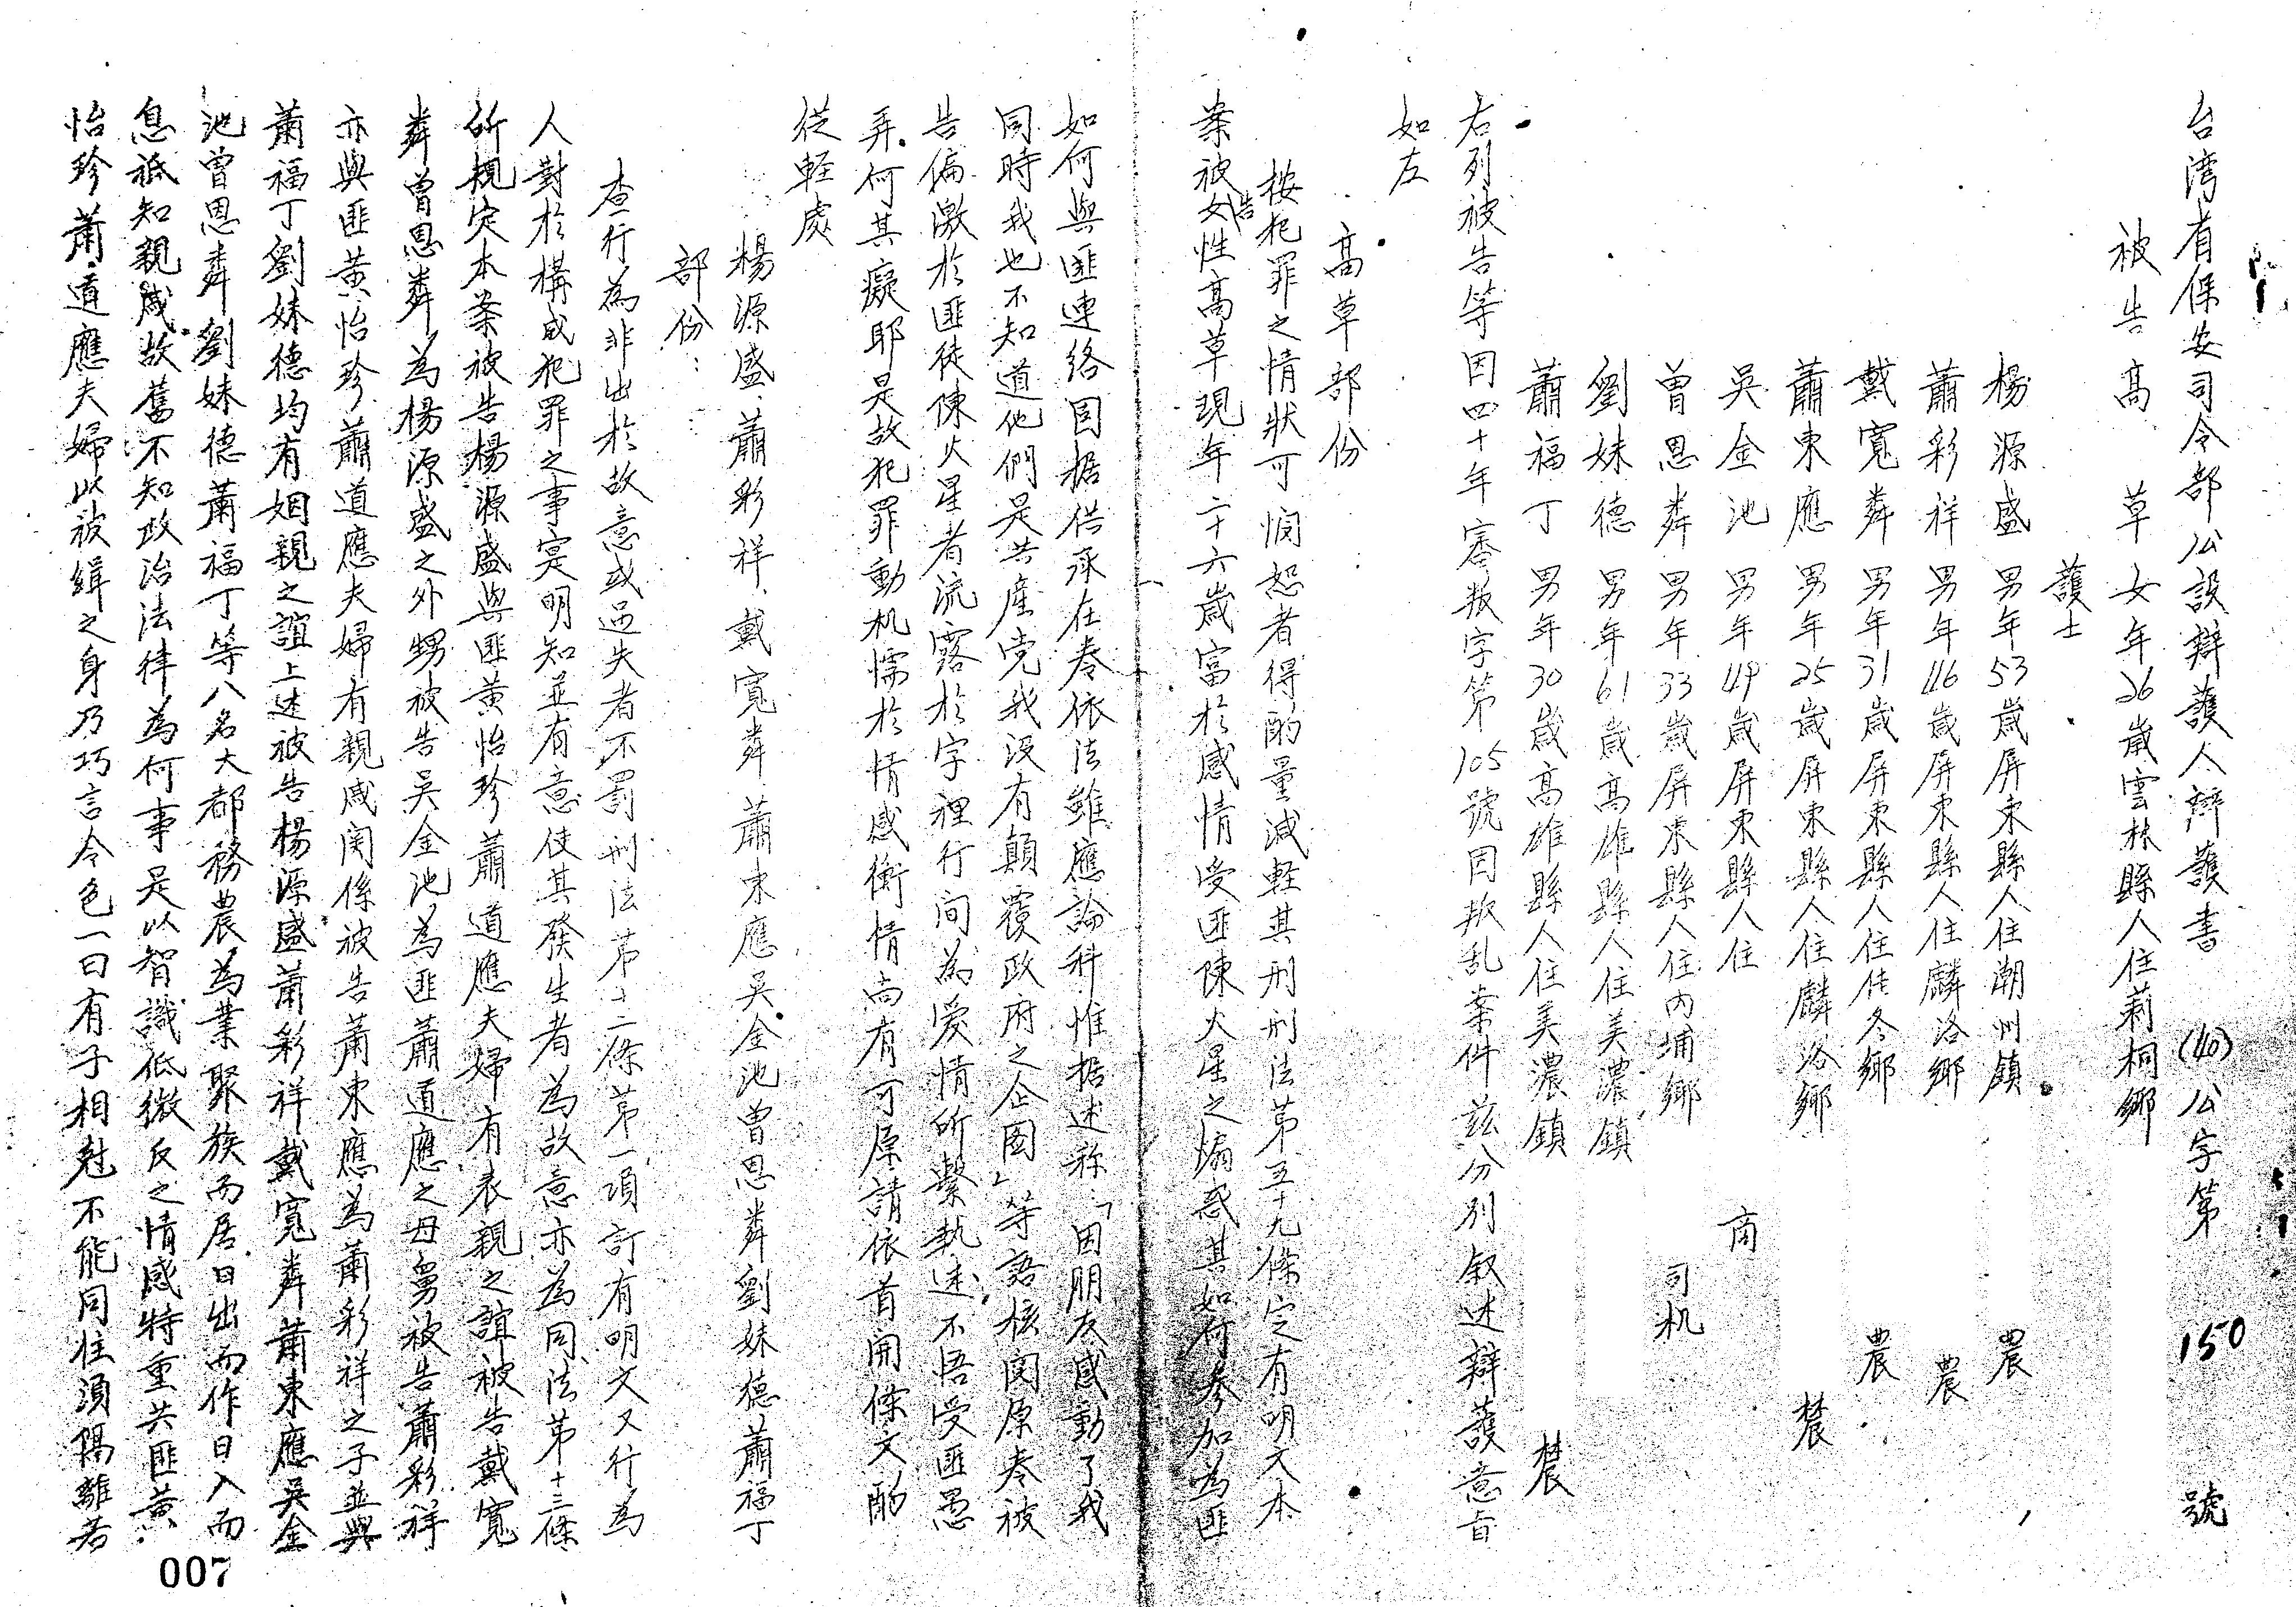 台湾省保安司令部公設辯護人辯護書 (40)公字第 150 號
被告 高 草 女年26歲雲林縣人住莿桐鄉
護士
楊源盛 男年53歲屏東縣人住潮州鎮 農
蕭彩祥 男年46歲屏東縣人住麟洛鄉 農
戴寬粦 男年31歲屏東縣人住佳冬鄉 農
蕭東應 男年25歲屏東縣人住麟洛鄉 農
吳金池 男年49歲屏東縣人住 商
曾恩粦 男年33歲屏東縣人住內埔鄉 司机
劉妹德 男年61歲高雄縣人住美濃鎮
蕭福丁 男年30歲高雄縣人住美濃鎮 農
右列被告等因四十年審叛字第105號因叛乱案件茲分別叙述辯護意旨
如左
高草部份
按犯罪之情狀可憫恕者得酌量減輕其刑刑法第五十九條定有明文本
案被告女性高草現年二十六歲富於感情受匪陳火星之煽惑其如何參加為匪
如何與匪連絡固据供承在卷依法雖應論科惟据述称：「因朋友感動了我
同時我也不知道他們是共產党我沒有顛覆政府之企圖」等語核閱原卷被
告偏激於匪徒陳火星者流露於字裡行间為愛情所繫執迷不悟受匪愚
弄何其癡耶是故犯罪動机懦於情感衡情尚有可原請依首開條文酌
從軽處
楊源盛、蕭彩祥、戴寬粦、蕭東應吳金池曾恩粦劉妹德蕭福丁
部份：
查行為非出於故意或過失者不罰刑法第十二條第一項訂有明文又行為
人對於構成犯罪之事実明知並有意使其發生者為故意亦為同法第十三條
所規定本案被告楊源盛與匪黃怡珍蕭道應夫婦有表親之誼被告戴寬
粦曾恩粦為楊源盛之外甥被告吳金池為匪蕭道應之母舅被告蕭彩祥
亦與匪黃怡珍蕭道應夫婦有親戚関係被告蕭東應為蕭彩祥之子並與
蕭福丁劉妹德均有姻親之誼上述被告楊源盛蕭彩祥戴寬粦蕭東應吳金
池曾恩粦劉妹德蕭福丁等八名大都務農為業聚族而居日出而作日入而
息祗知親戚故舊不知政治法律為何事是以智識低微反之情感特重共匪黃
怡珍蕭道應夫婦以被緝之身乃巧言令色一曰有子相尅不能同住須隔離若
007